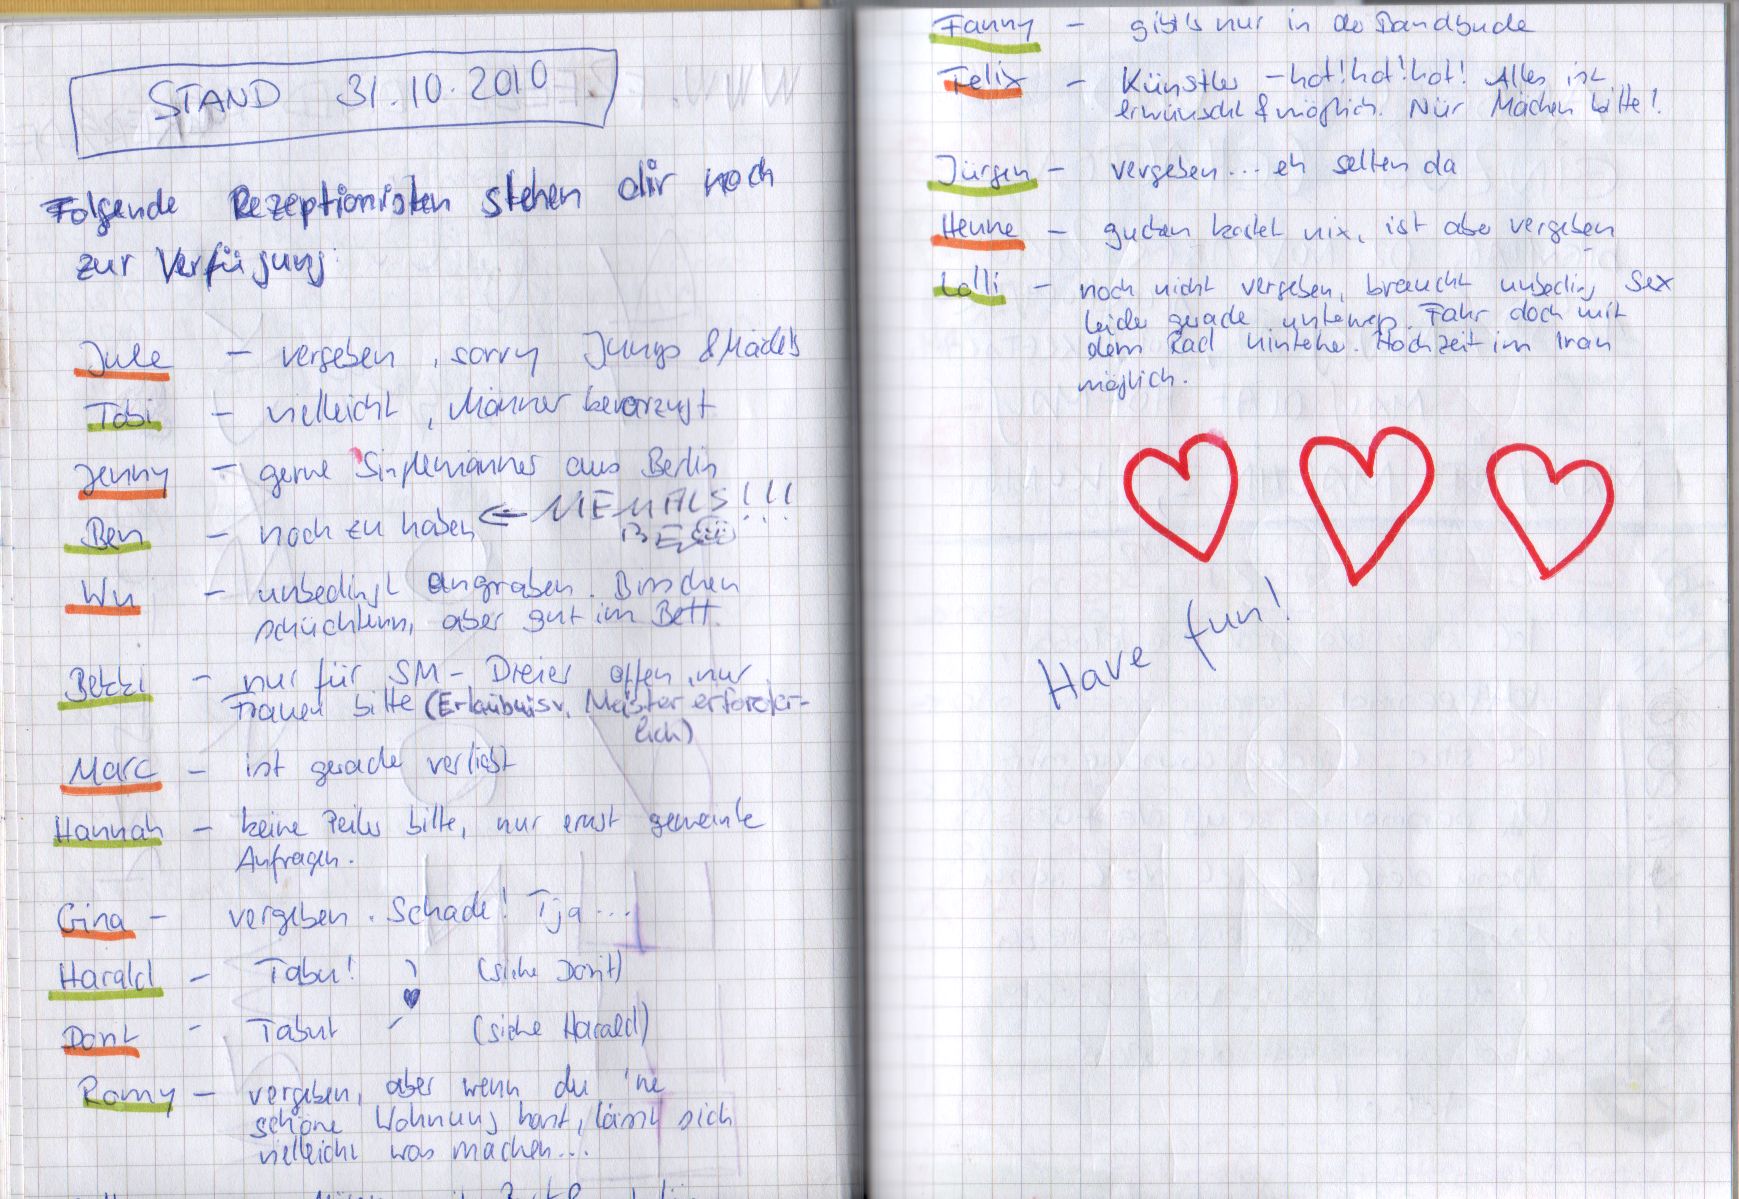 STAND 31.10.2010
Folgende Rezeptionisten stehen dir noch
zur Verfügung:
Jule – vergeben, sorry Jungs & Mädels
Tobi – vielleicht, Männer bevorzugt
Jenny – gerne Singlemänner aus Berlin
Ben – noch zu haben ← NIEMALS!!!
Wu – unbedingt angraben. Bisschen
schüchtern, aber gut im Bett.
Bekki – nur für SM-Dreier offen, nur
Frauen bitte (Erlaubnis v. Meister erforder-
lich)
Marc – ist gerade verliebt
Hannah – keine Peiler bitte, nur ernst gemeinte
Anfragen.
Gina – vergeben. Schade! Tja...
Harald – Tabu! (siehe Dorit)
Dorit – Tabu! (siehe Harald)
Romy – vergeben, aber wenn du 'ne
schöne Wohnung hast, lässt sich
vielleicht was machen...
Fanny – gibt's nur in der Bandbude
Felix – Künstler – hot! hot! hot! Alles ist
erwünscht & möglich. Nur Mächen bitte!
Jürgen – vergeben... eh selten da
Henne – gucken kostet nix, ist aber vergeben
Lolli – noch nicht vergeben, braucht unbeding Sex
leider gerade unterwegs. Fahr doch mit
dem Rad hinterher. Hochzeit im Iran
möglich.
Have fun!